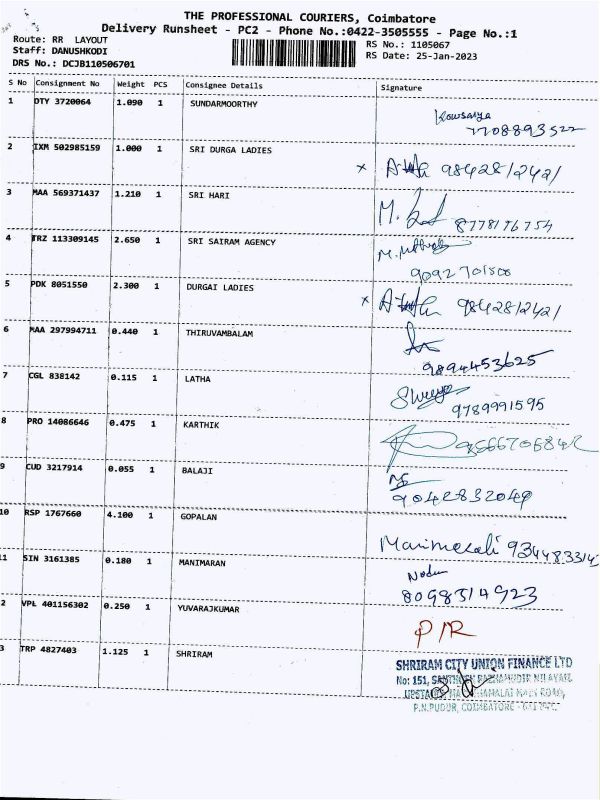 THE PROFESSIONAL COURIERS, Coimbatore
Delivery Runsheet - PC2 - Phone No.:0422-3505555 - Page No.:1
Route: RR LAYOUT
RS No.: 1105067
Staff: DANUSHKODI
RS Date: 25-Jan-2023
DRS No.: DCJB110506701
S No Consignment No Weight PCS Consignee Details Signature
1 DTY 3720064 1.090 1 SUNDARMOORTHY
Kowsalya
7708893522
2 IXM 502985159 1.000 1 SRI DURGA LADIES
x 9842812421
3 MAA 569371437 1.210 1 SRI HARI
M. 8778176754
4 TRZ 113309145 2.650 1 SRI SAIRAM AGENCY
M.
9092701500
5 PDK 8051550 2.300 1 DURGAI LADIES
x 9842812421
6 MAA 297994711 0.440 1 THIRUVAMBALAM
9894453625
7 CGL 838142 0.115 1 LATHA
9789991595
8 PRO 14086646 0.475 1 KARTHIK
9 CUD 3217914 0.055 1 BALAJI
9042832049
10 RSP 1767660 4.100 1 GOPALAN
Manimegali 9344833141
11 SIN 3161385 0.180 1 MANIMARAN
8098314923
2 VPL 401156302 0.250 1 YUVARAJKUMAR
P/R
3 TRP 4827403 1.125 1 SHRIRAM
SHRIRAM CITY UNION FINANCE LTD
No: 151,
P.N.PUDUR, COIMBATORE